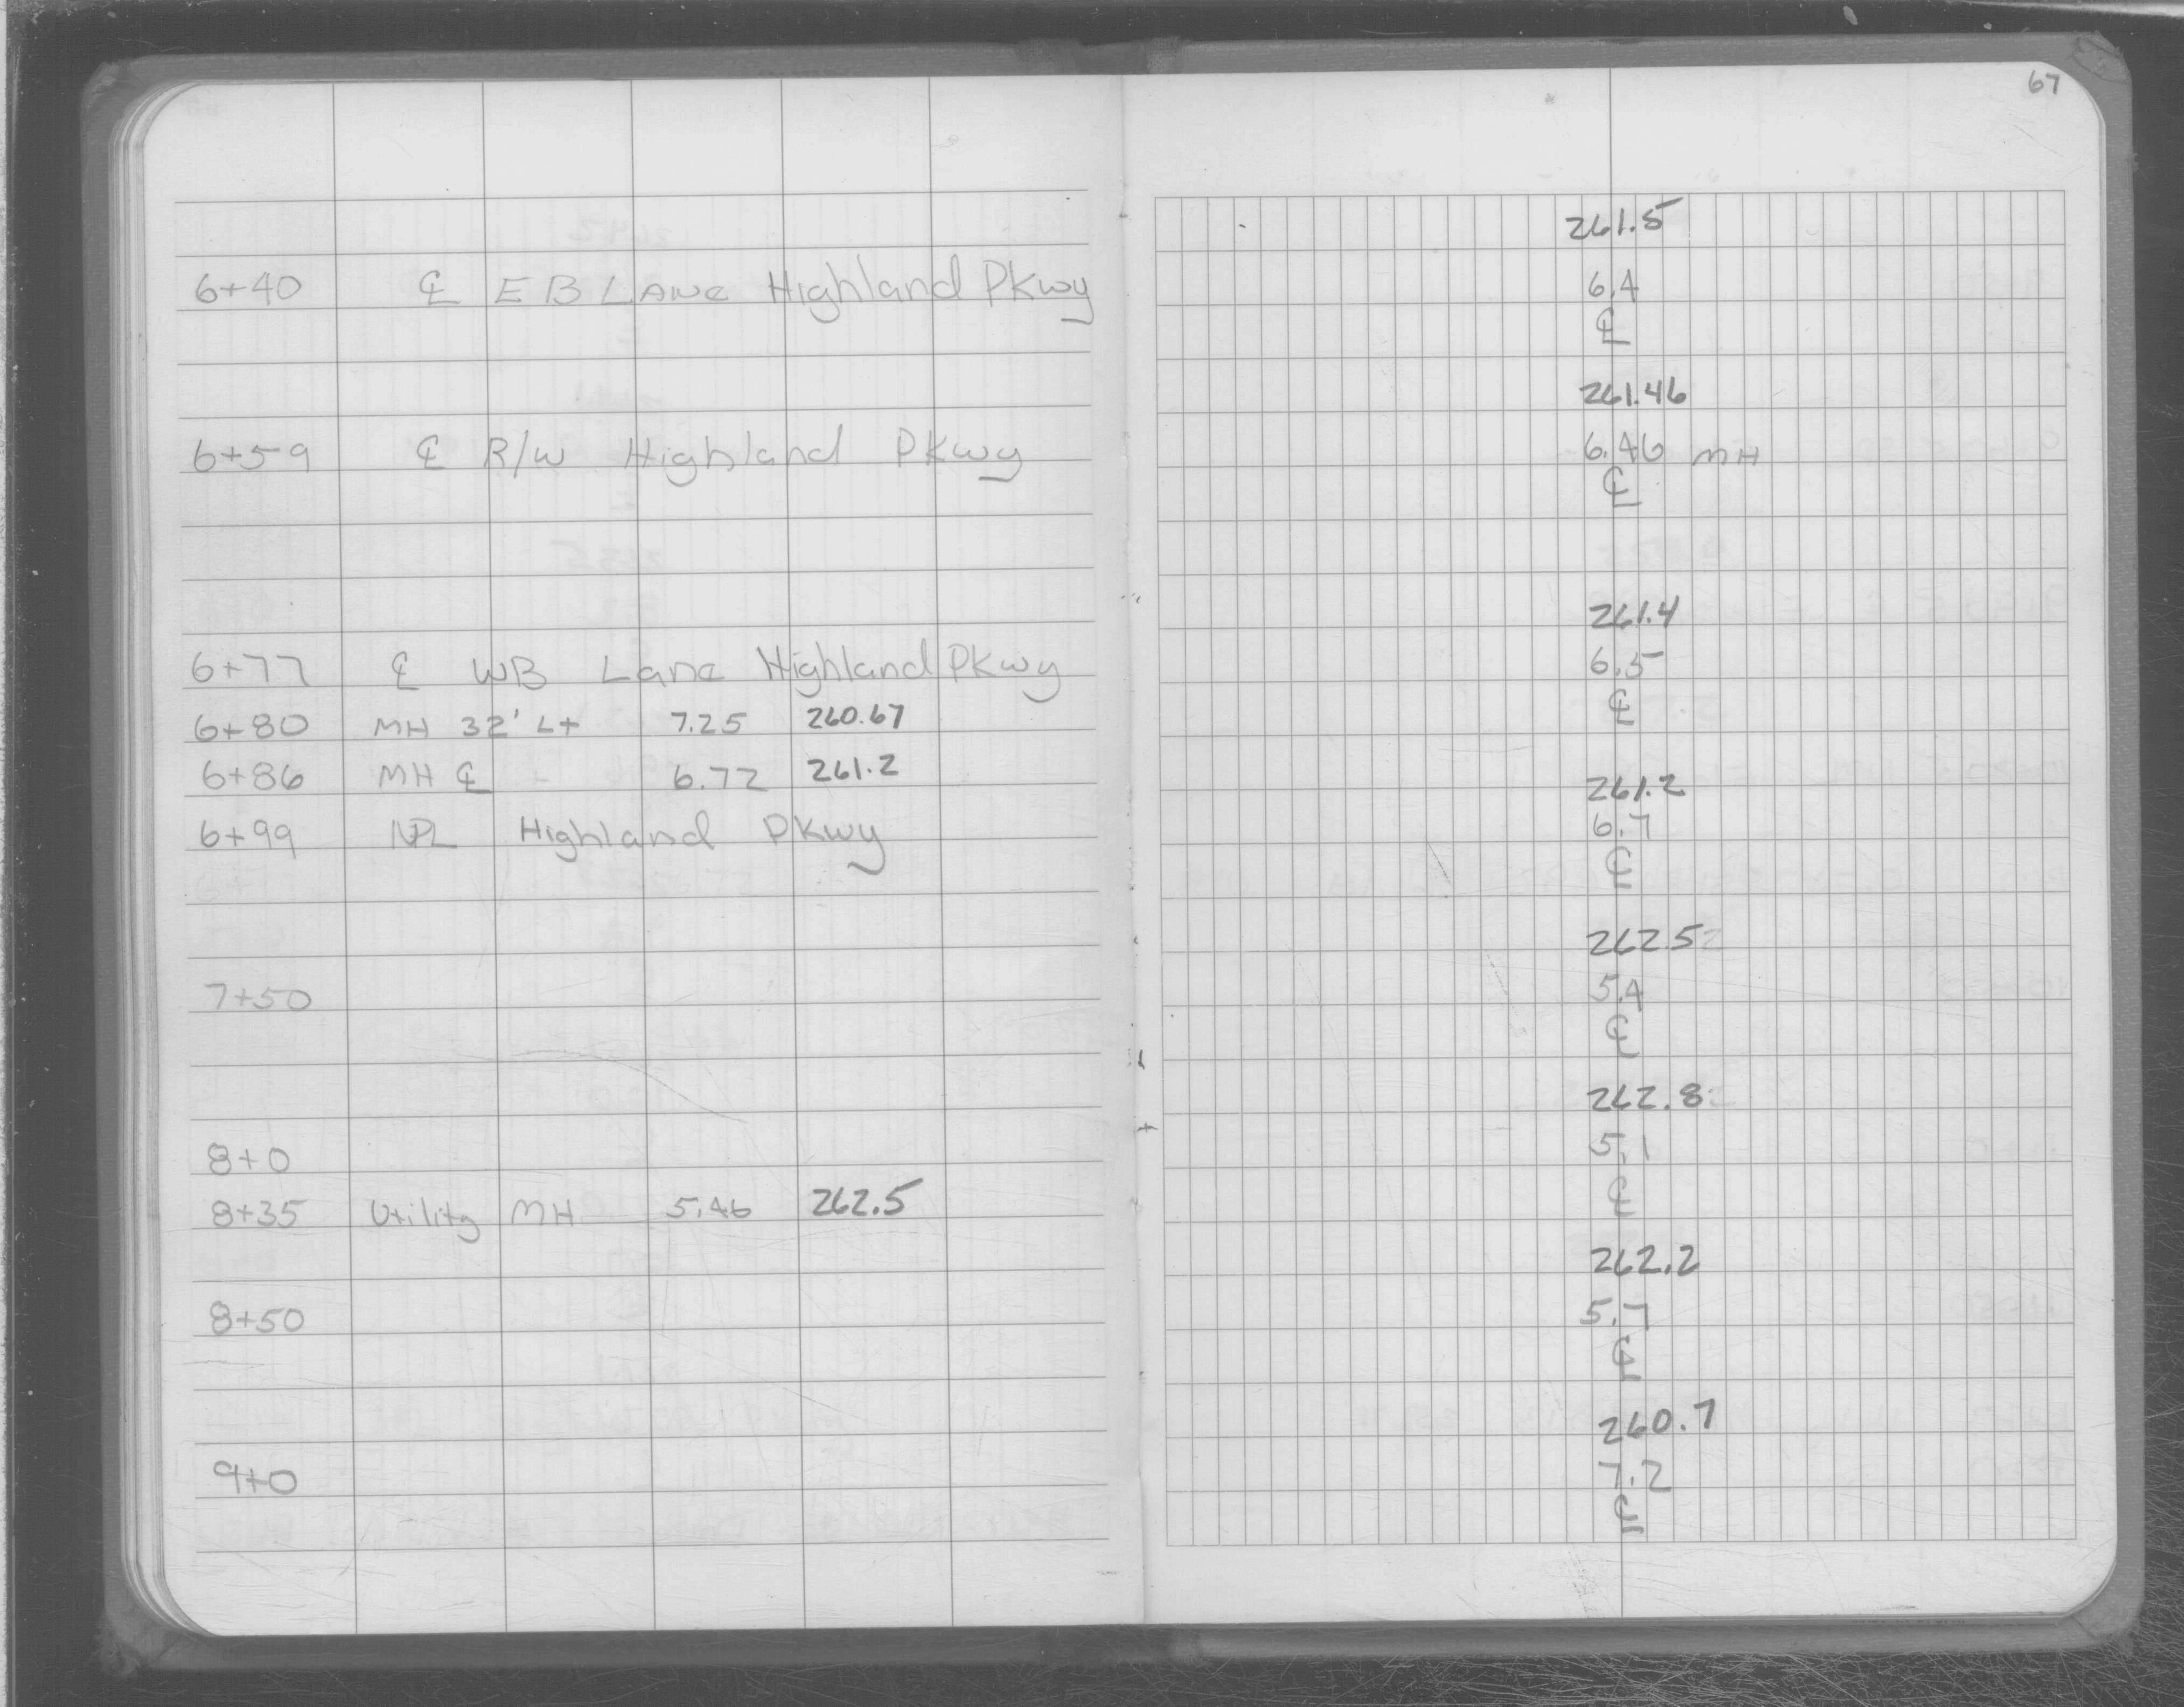 67
261.5
6+40 ℄ E B Lane Highland Pkwy 6.4
℄
261.46
6+59 ℄ R/W Highland Pkwy 6.46 MH
℄
261.4
6+77 ℄ WB Lane Highland Pkwy 6.5
6+80 MH 32' Lt 7.25 260.67 ℄
6+86 MH ℄ 6.72 261.2 261.2
6+99 NPL Highland Pkwy 6.7
℄
262.5
7+50 5.4
℄
262.8
8+0 5.1
8+35 Utility MH 5.46 262.5 ℄
262.2
8+50 5.7
℄
260.7
9+0 7.2
℄